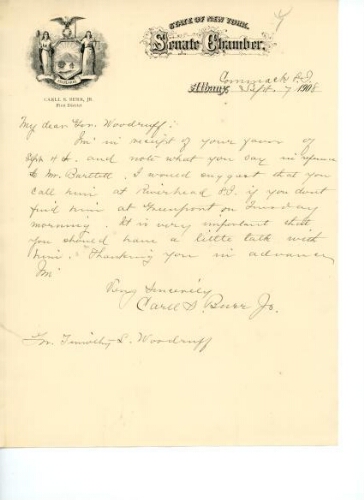 STATE OF NEW YORK.
Senate Chamber.
CARLL S. BURR, JR.
Commack L.I.
Albany Sept. 7 1908
My dear Gov. Woodruff:
I'm in receipt of your favor of
Sept 4th. and note what you say in
to Mr. Bartlett. I would suggest that you
call him at Riverhead L.I. if you don't
find him at Greenport on Tuesday
morning. It is very important that
you should have a little talk with
him. Thanking you in advance
I'm
Very Sincerely
Carll S. Burr Jr.
Timothy L. Woodruff